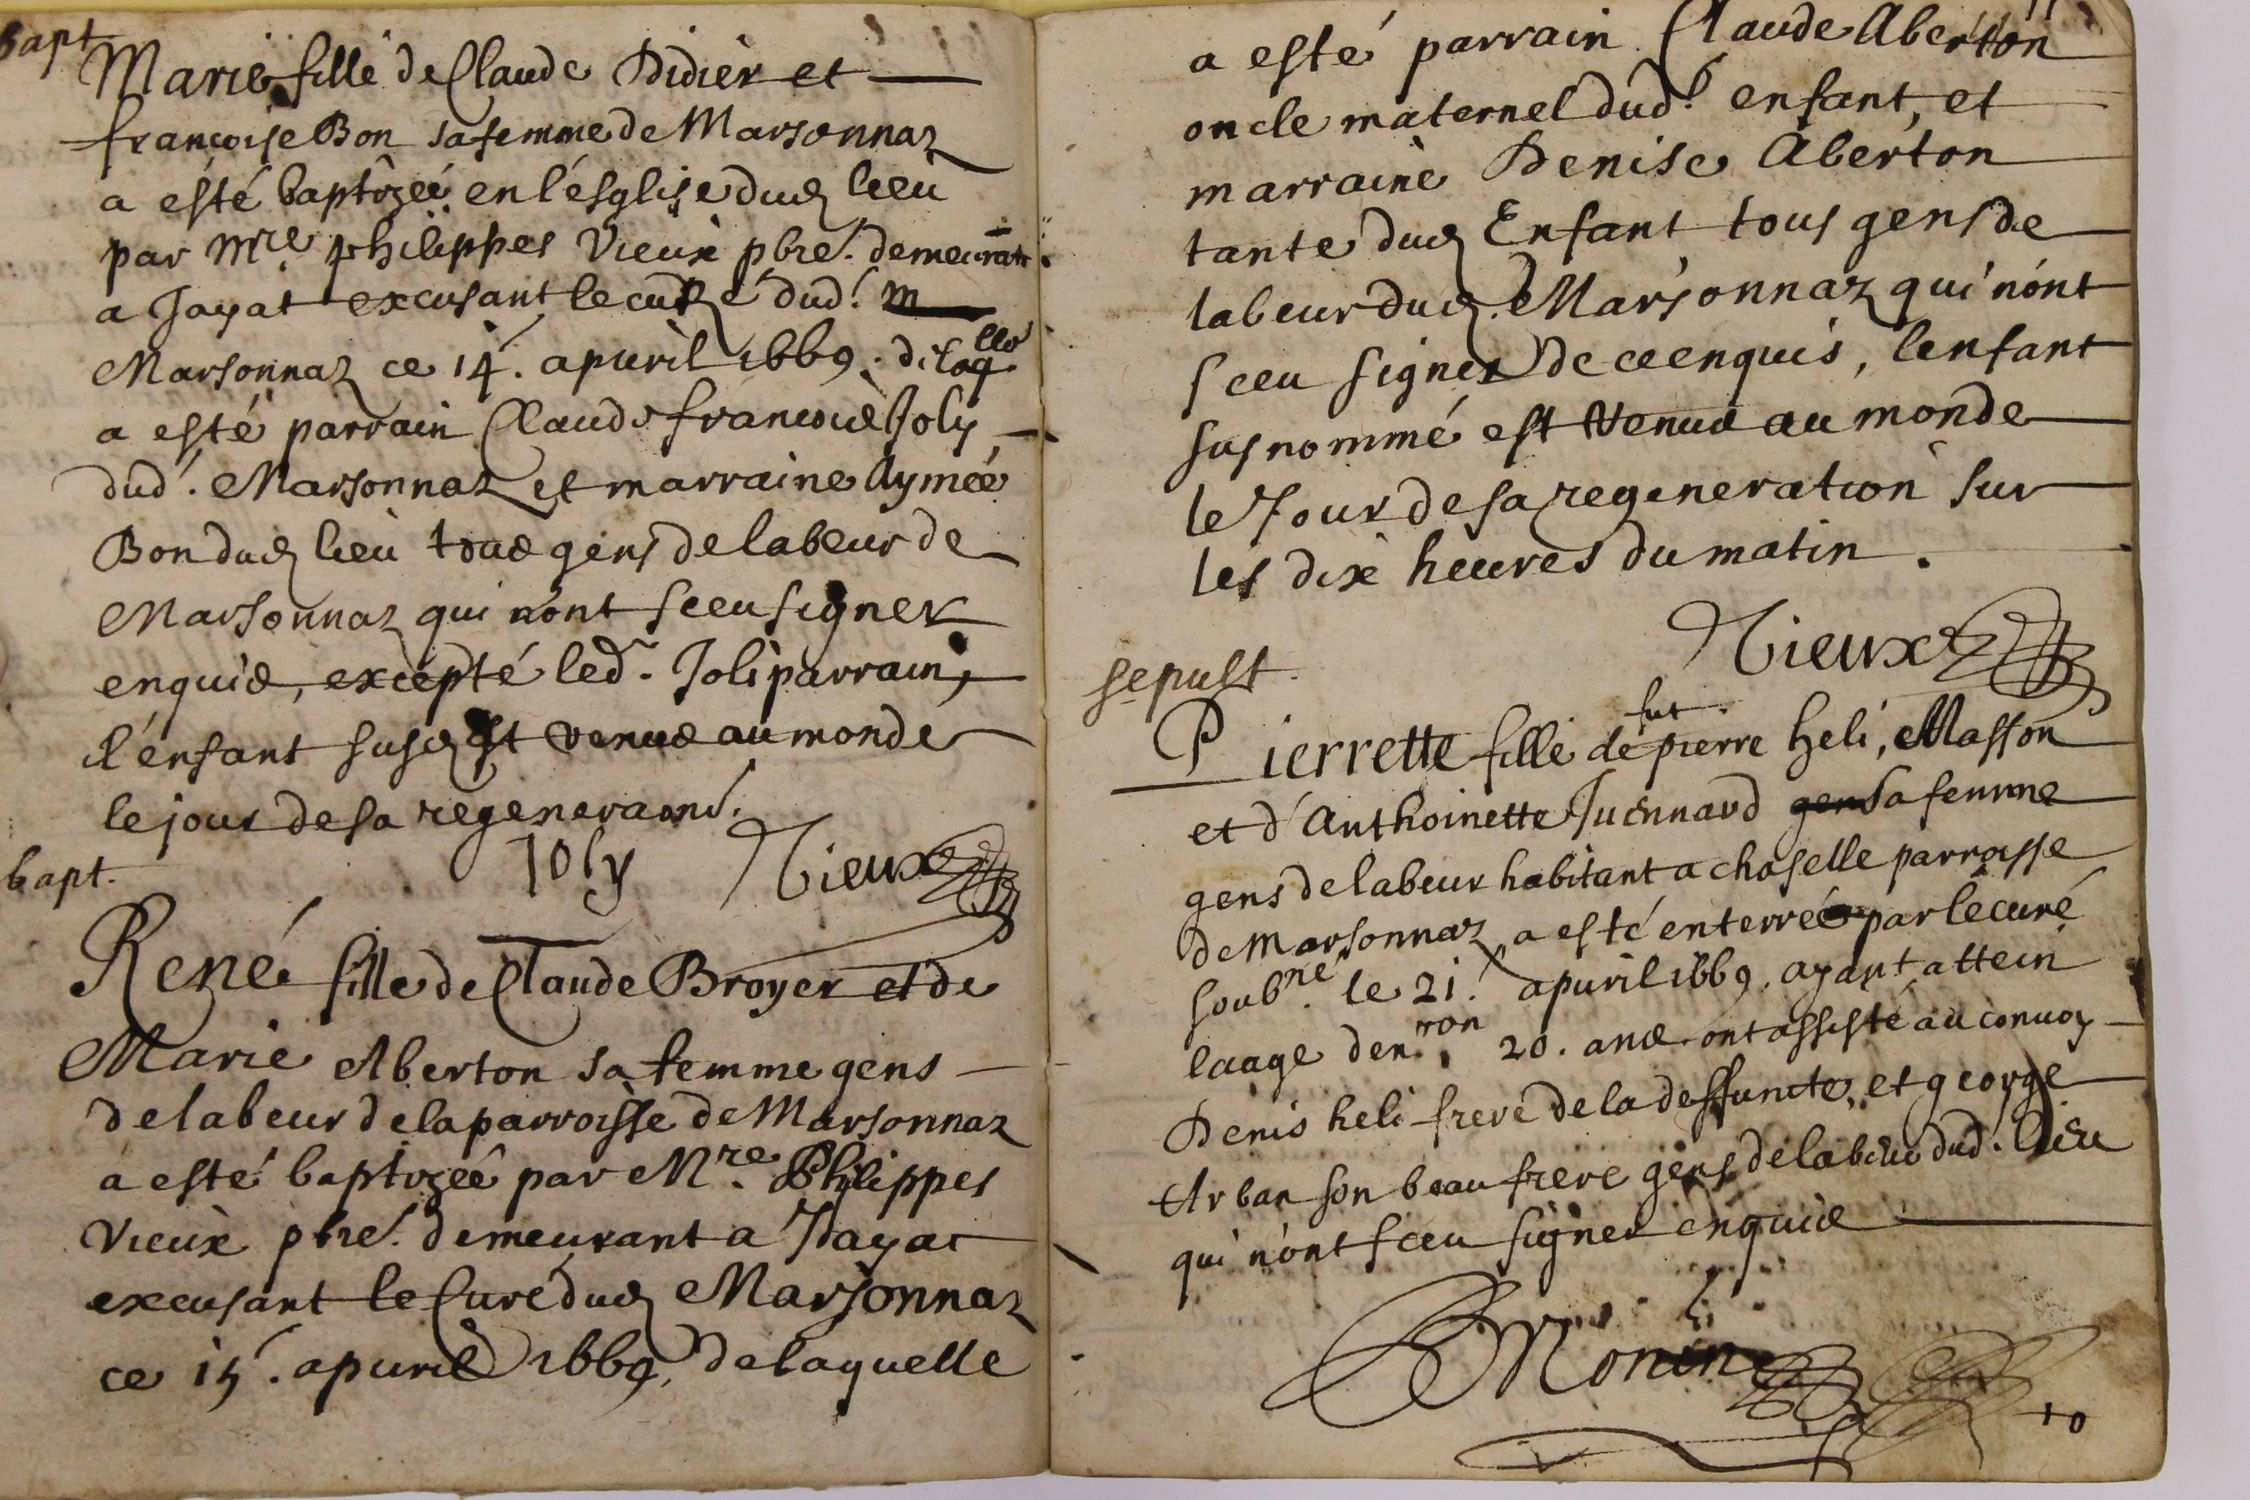 bapt
Marie fille de Claude Didier et
françoise Bon sa femme de Marsonnaz
a esté baptizeé en l'ésglise dud lieu
par Mre philippes Vieux pbre. demeurāt
a Jayat excusant le curé dud. m
Marsonnaz ce 14. apuril 1669. de laqlle
a esté parrain Claude francois Joly
dud. Marsonnaz et marraine Aymeé
Bon dud lieu tous gens de labeur de
Marsonnaz qui n'ont sceu signer
enquis, excepté led. Joli parrain,
l'énfant susd est venue au monde
le jour de sa regeneraōn.
Joly Vieux
bapt.
René fille de Claude Broyer et de
Marie Aberton sa femme gens
de labeur de la parroisse de Marsonnaz
a esté baptizeé par Mre. Philippes
Vieux pbre. demeurant a Jayat
excusant le Curé dud Marsonnaz
ce 15. apuril 1669, de laquelle
a esté parrain Claude Aberton
oncle maternel dud. enfant, et
marraine Denise Aberton
tante dud Enfant tous gens de
labeur dud. Marsonnaz qui n'ont
sceu signer de ce enquis, l'enfant
susnommé est venue au monde
le Jour de sa regeneration sur
les dix heures du matin.
Vieux
sepult.
Pierrette fille de fut pierre heli, Masson
et d'Anthoinette Juénnard gen sa femme
gens de labeur habitant a chaselle parroisse
de Marsonnaz a esté enterreé par le curé
soubné. le 21. apuril 1669. ayant attein
laage den.ron 20. ans. ont assisté au conuoy
Denis heli frere de la deffuncte, et george
Arban son beau frere gens de labeur dud. lieu
qui n'ont sceu signer enquis
Monin
10